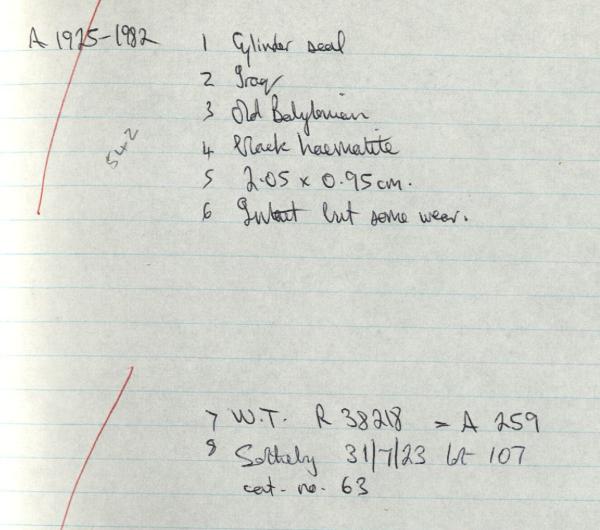 A 1925-1982 1 Cylinder seal
2 Iraq
3 Old Babylonian
542
4 black haematite
5 2.05 x 0.95 cm.
6 Intact but some wear.
7 W.T. R 38218 = A 259
8 Sotheby 31/7/23 lot 107
cat. no. 63